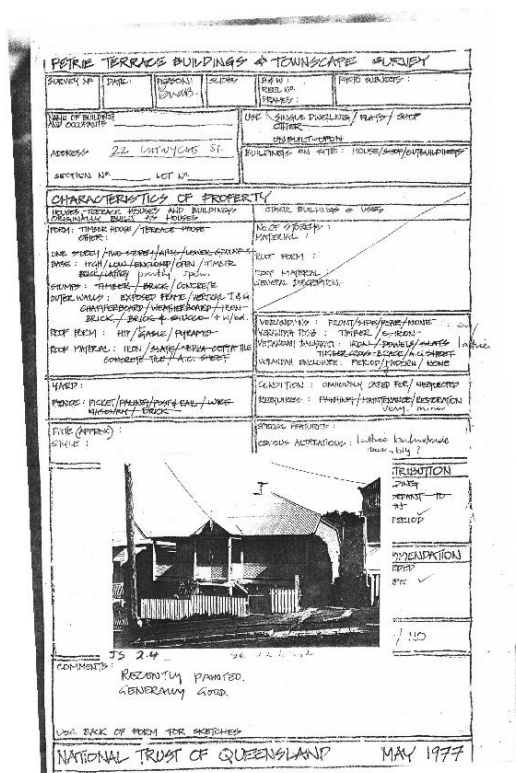 PETRIE TERRACE BUILDINGS & TOWNSCAPE SURVEY
SURVEY Nº DATE: PERSON: SLIDES B&W: PHOTO SUBJECTS:
REEL Nº:
FRAMES:
NAME OF BUILDING
AND OCCUPANTS
USE SINGLE DWELLING / FLATS / SHOP
OTHER
UNBUILT-UPON
ADDRESS 22 LUTWYCHE ST.
BUILDINGS ON SITE: HOUSE/SHOP/OUTBUILDINGS
SECTION Nº LOT Nº
CHARACTERISTICS OF PROPERTY
HOUSES, TERRACE HOUSES AND BUILDINGS
ORIGINALLY BUILT AS HOUSES
OTHER BUILDINGS & USES
FORM: TIMBER HOUSE / TERRACE HOUSE
OTHER:
Nº OF STOREYS:
MATERIAL:
ONE STOREY / TWO STOREY / ATTIC / LOWER GROUND
BASE: HIGH / LOW / ENCLOSED / OPEN / TIMBER
BRICK / LATTICE partly open.
ROOF FORM:
STUMPS: TIMBER / BRICK / CONCRETE
ROOF MATERIAL:
GENERAL DESCRIPTION.
OUTER WALLS: EXPOSED FRAME / VERTICAL T.&G
CHAMFERBOARD / WEATHERBOARD / IRON
BRICK / BRICK & STUCCO
ROOF FORM: HIP / GABLE / PYRAMID
ROOF MATERIAL: IRON / SLATE / TERRA-COTTA TILE
CONCRETE TILE / A.C. SHEET
VERANDAHS FRONT/SIDE/REAR/NONE
VERANDAH POSTS: TIMBER / S-IRON
VERANDAH BALUSTR: IRON / DOWELS / SLATS lattice
TIMBER CROSS-BRACE / A.C. SHEET
VERANDAH ENCLOSURE: PERIOD / MODERN / NONE
YARD:
FENCE: PICKET / PALING / POST & RAIL / WIRE
MASONRY / BRICK
CONDITION: OBVIOUSLY CARED FOR / NEGLECTED
REQUIRES: PAINTING / MAINTENANCE / RESTORATION
very minor
DATE (APPROX):
STYLE:
SPECIAL FEATURES:
OBVIOUS ALTERATIONS: lattice balustrade
TRIBUTION
TO
PERIOD
MMENDATION
/ NO
JS 2.4
COMMENTS:
RECENTLY PAINTED.
GENERALLY GOOD.
USE BACK OF FORM FOR SKETCHES
NATIONAL TRUST OF QUEENSLAND MAY 1977